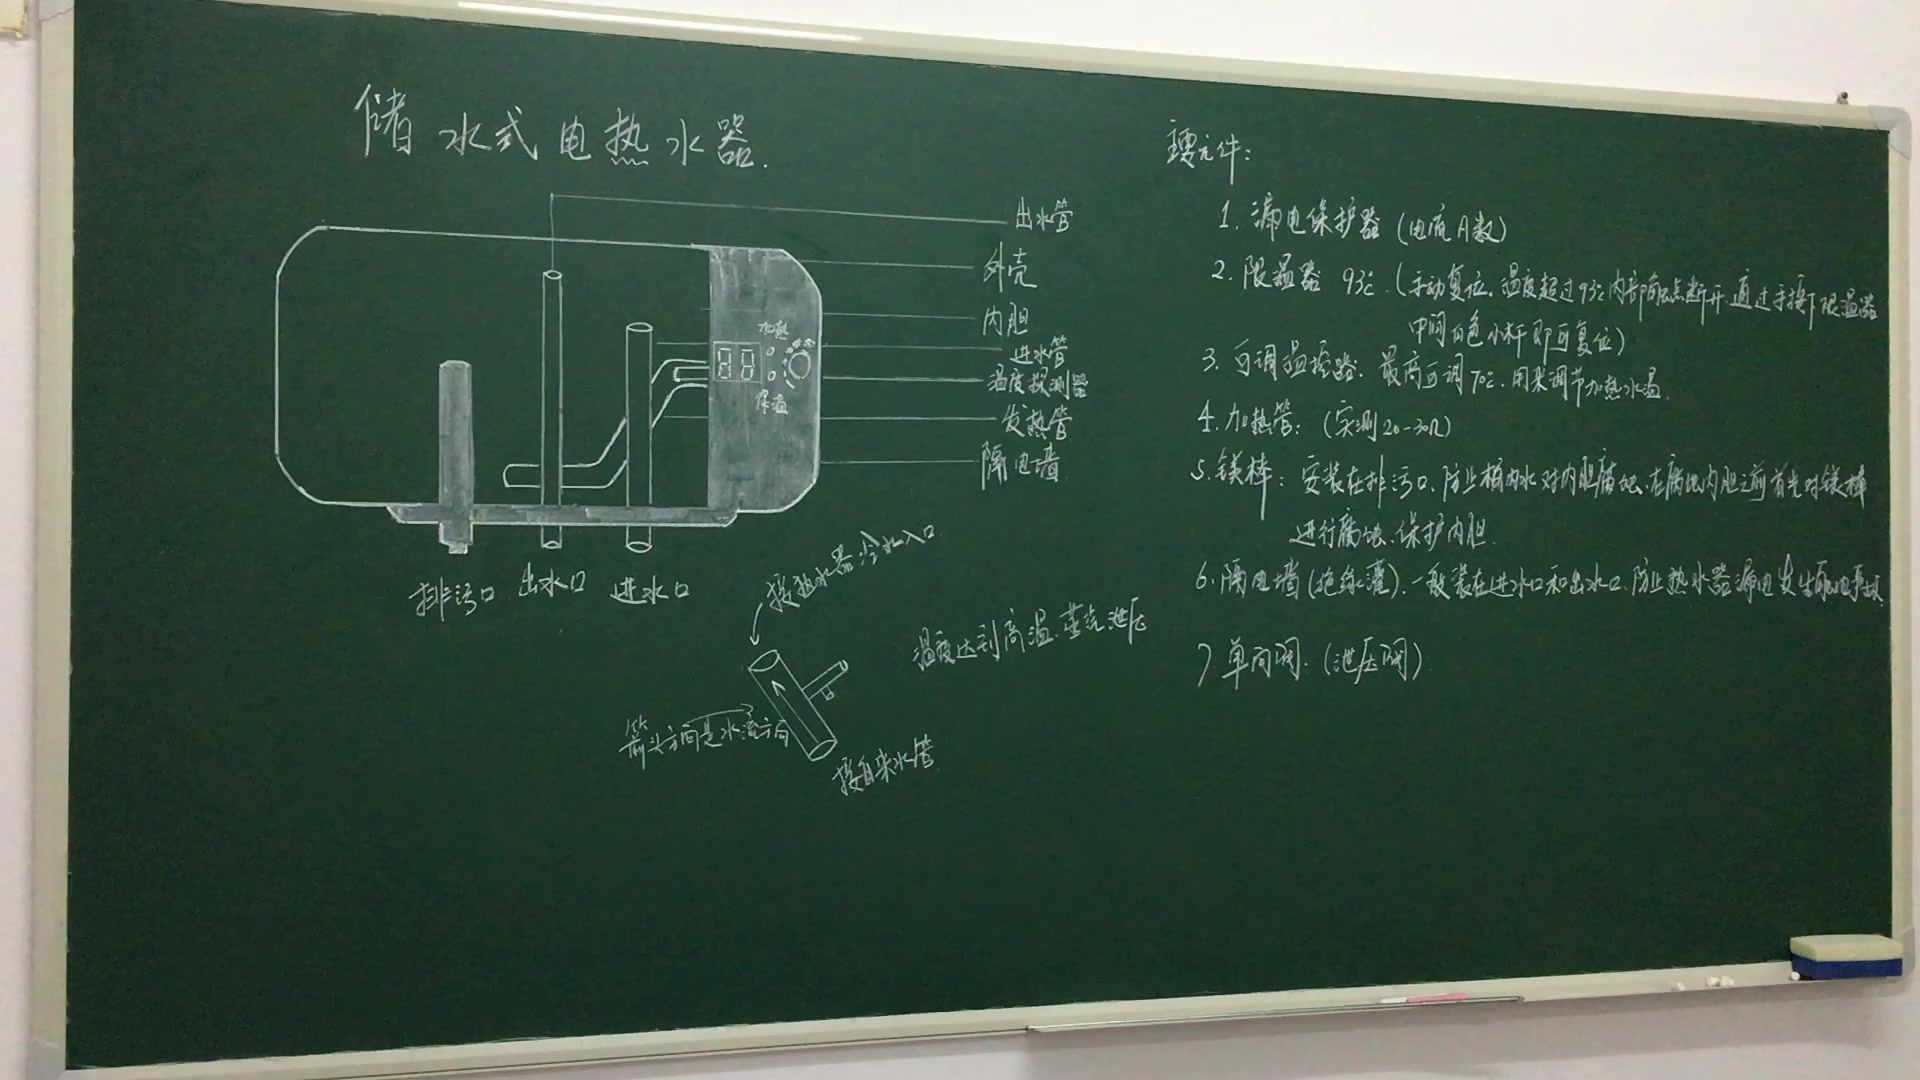 储水式电热水器.
出水管
外壳
内胆
进水管
温度探测器
发热管
隔电墙
加热
88
保温
排污口 出水口 进水口
接热水器冷水入口
温度达到高温.蒸汽泄压
箭头方向是水流方向
接自来水管
主要元件:
1.漏电保护器(电流A数)
2.限温器 93℃.(手动复位。温度超过93℃内部触点断开.通过手按下限温器
中间白色小杆即可复位)
3.可调温控器:最高可调70℃.用来调节加热水温.
4.加热管:(实测20-30Ω)
5.镁棒:安装在排污口、防止桶内水对内胆腐蚀.在腐蚀内胆之前首先对镁棒
进行腐蚀、保护内胆.
6.隔电墙(绝缘灌).一般装在进水口和出水口.防止热水器漏电发生触电事故.
7单向阀.(泄压阀).